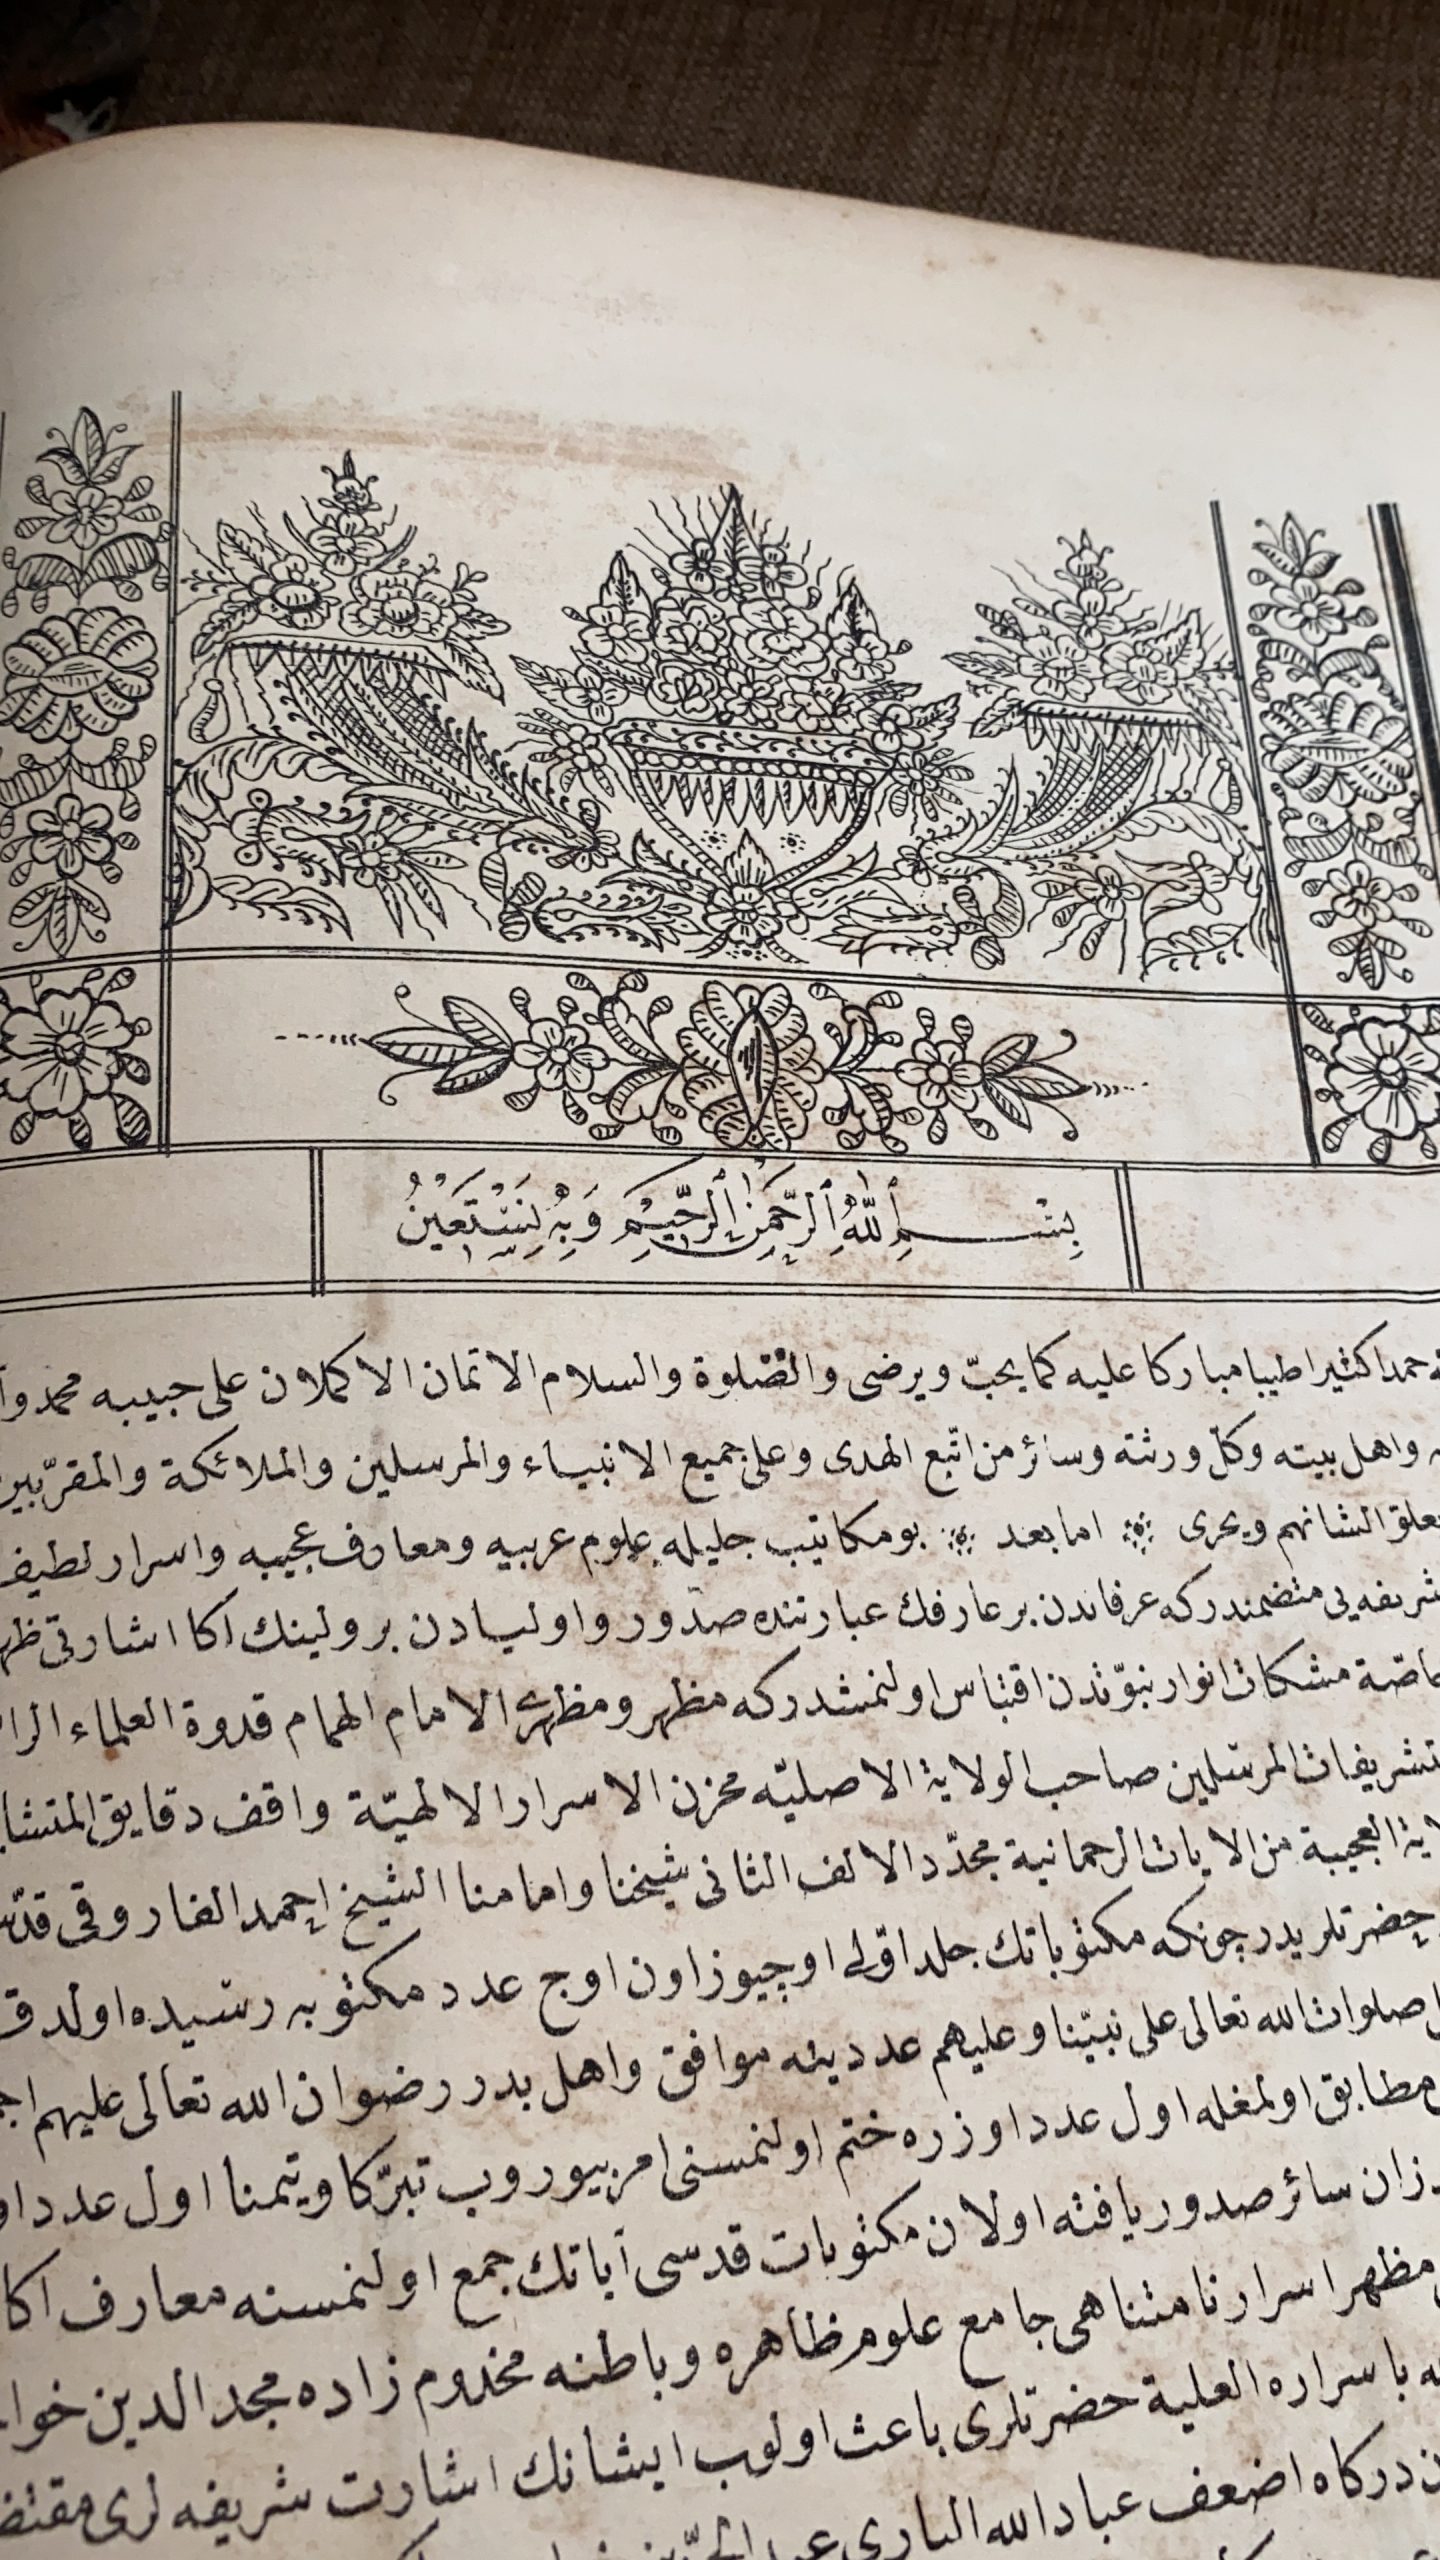 بِسْمِ اللّٰهِ الرَّحْمٰنِ الرَّحِيمِ وَبِهِ نَسْتَعِينُ
حمدا كثيرا طيبا مباركا عليه كما يحبّ ويرضى والصّلوة والسلام الاتمان الاكملان على حبيبه محمد
واهل بيته وكلّ ورثته وسائر من اتّبع الهدى وعلى جميع الانبياء والمرسلين والملائكة والمقرّبين
الشانهم ويحرى اما بعد بو مكاتيب جليله علوم عربيه ومعارف عجيبه واسرار
شريفه يى متضمندر كه عرفاندن بر عارفك عبارتنده صدور و اوليادن بر ولينك اكا اشارتى
مشكات انوار نبوّتدن اقتباس اولنمشدر كه مظهر و مظهرى الامام الهمام قدوة العلماء
المرسلين صاحب الولاية الاصليّه مخزن الاسرار الالهيّة واقف دقايق
العجيبة من الايات الرحمانية مجدّد الالف الثانى شيخنا وامامنا الشيخ احمد الفاروقى
حضرتلريدر چونكه مكتوباتك جلد اوّلى اوچيوز اون اوج عدد مكتوبه رسيده اولدقـ
صلوات الله تعالى على نبيّنا وعليهم عددينه موافق واهل بدر رضوان الله تعالى عليهم
مطابق اولمغله اول عدد اوزره ختم اولنمسنى امر بيوروب تبرّكا وتيمنا اول عدد
سائر صدور يافته اولان مكتوبات قدسى آياتك جمع اولنمسنه معارف
مظهر اسرار نامتناهى جامع علوم ظاهره وباطنه مخدوم زاده مجد الدين
باسراره العلية حضرتلرى باعث اولوب ايشانك اشارت شريفه لرى
دركاه اضعف عباد الله البارى